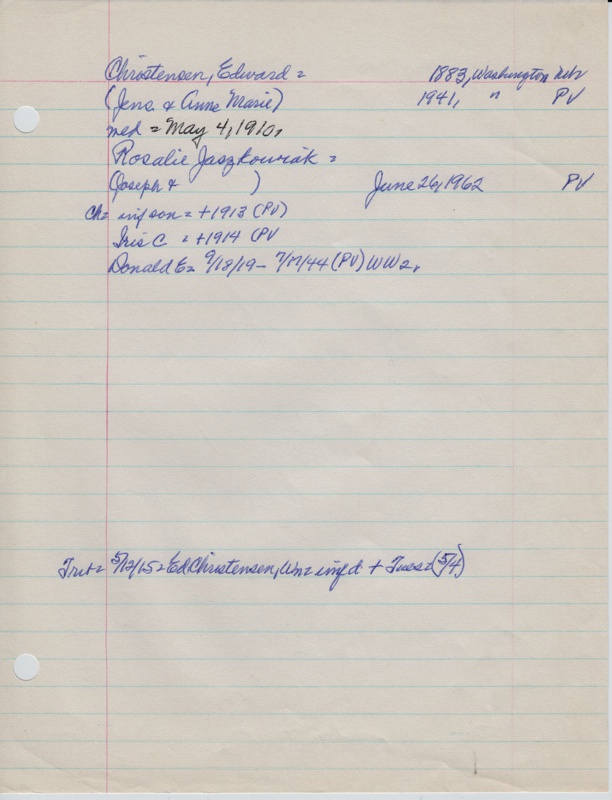 Christensen, Edward = 1883, Washington Nebr
(Jens & Anne Marie) 1941, " PV
med = May 4, 1910,
Rosalie Jaszkowiak =
(Joseph & ) June 26, 1962 PV
Ch= inf son = +1913 (PV)
Iris C = +1914 (PV
Donald E = 9/18/19 - 7/17/44 (PV) WW2,
Trib = 5/12/15 = Ed Christensen, inf d + Tues = (5/4)